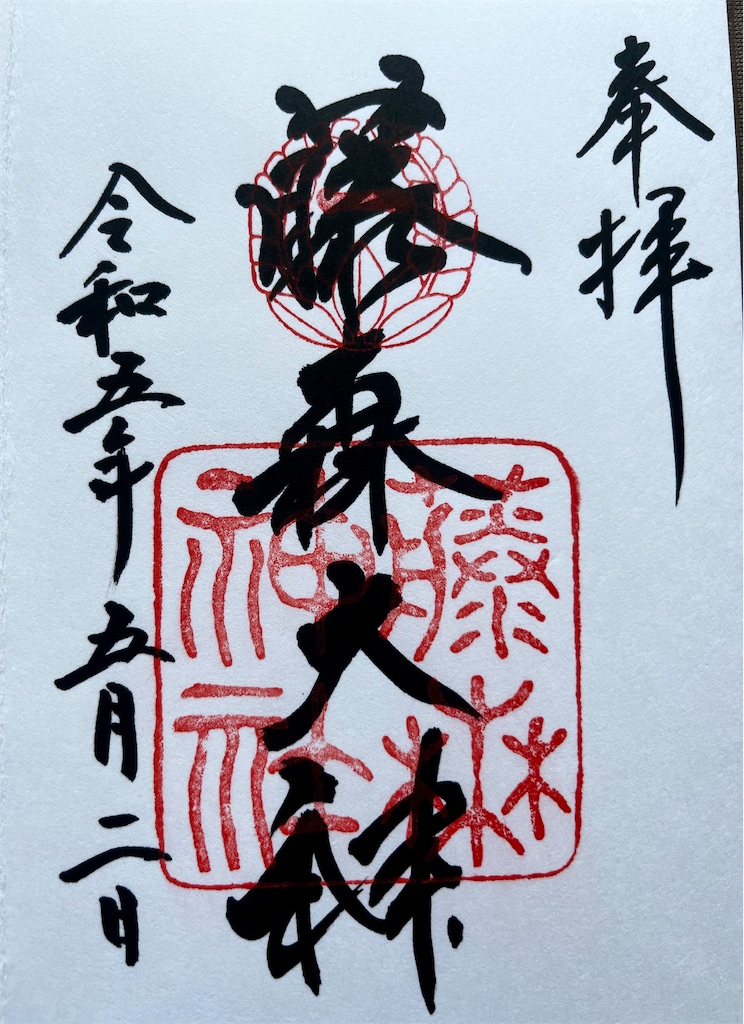 奉拝
藤森大神
藤森神社
令和五年五月二日